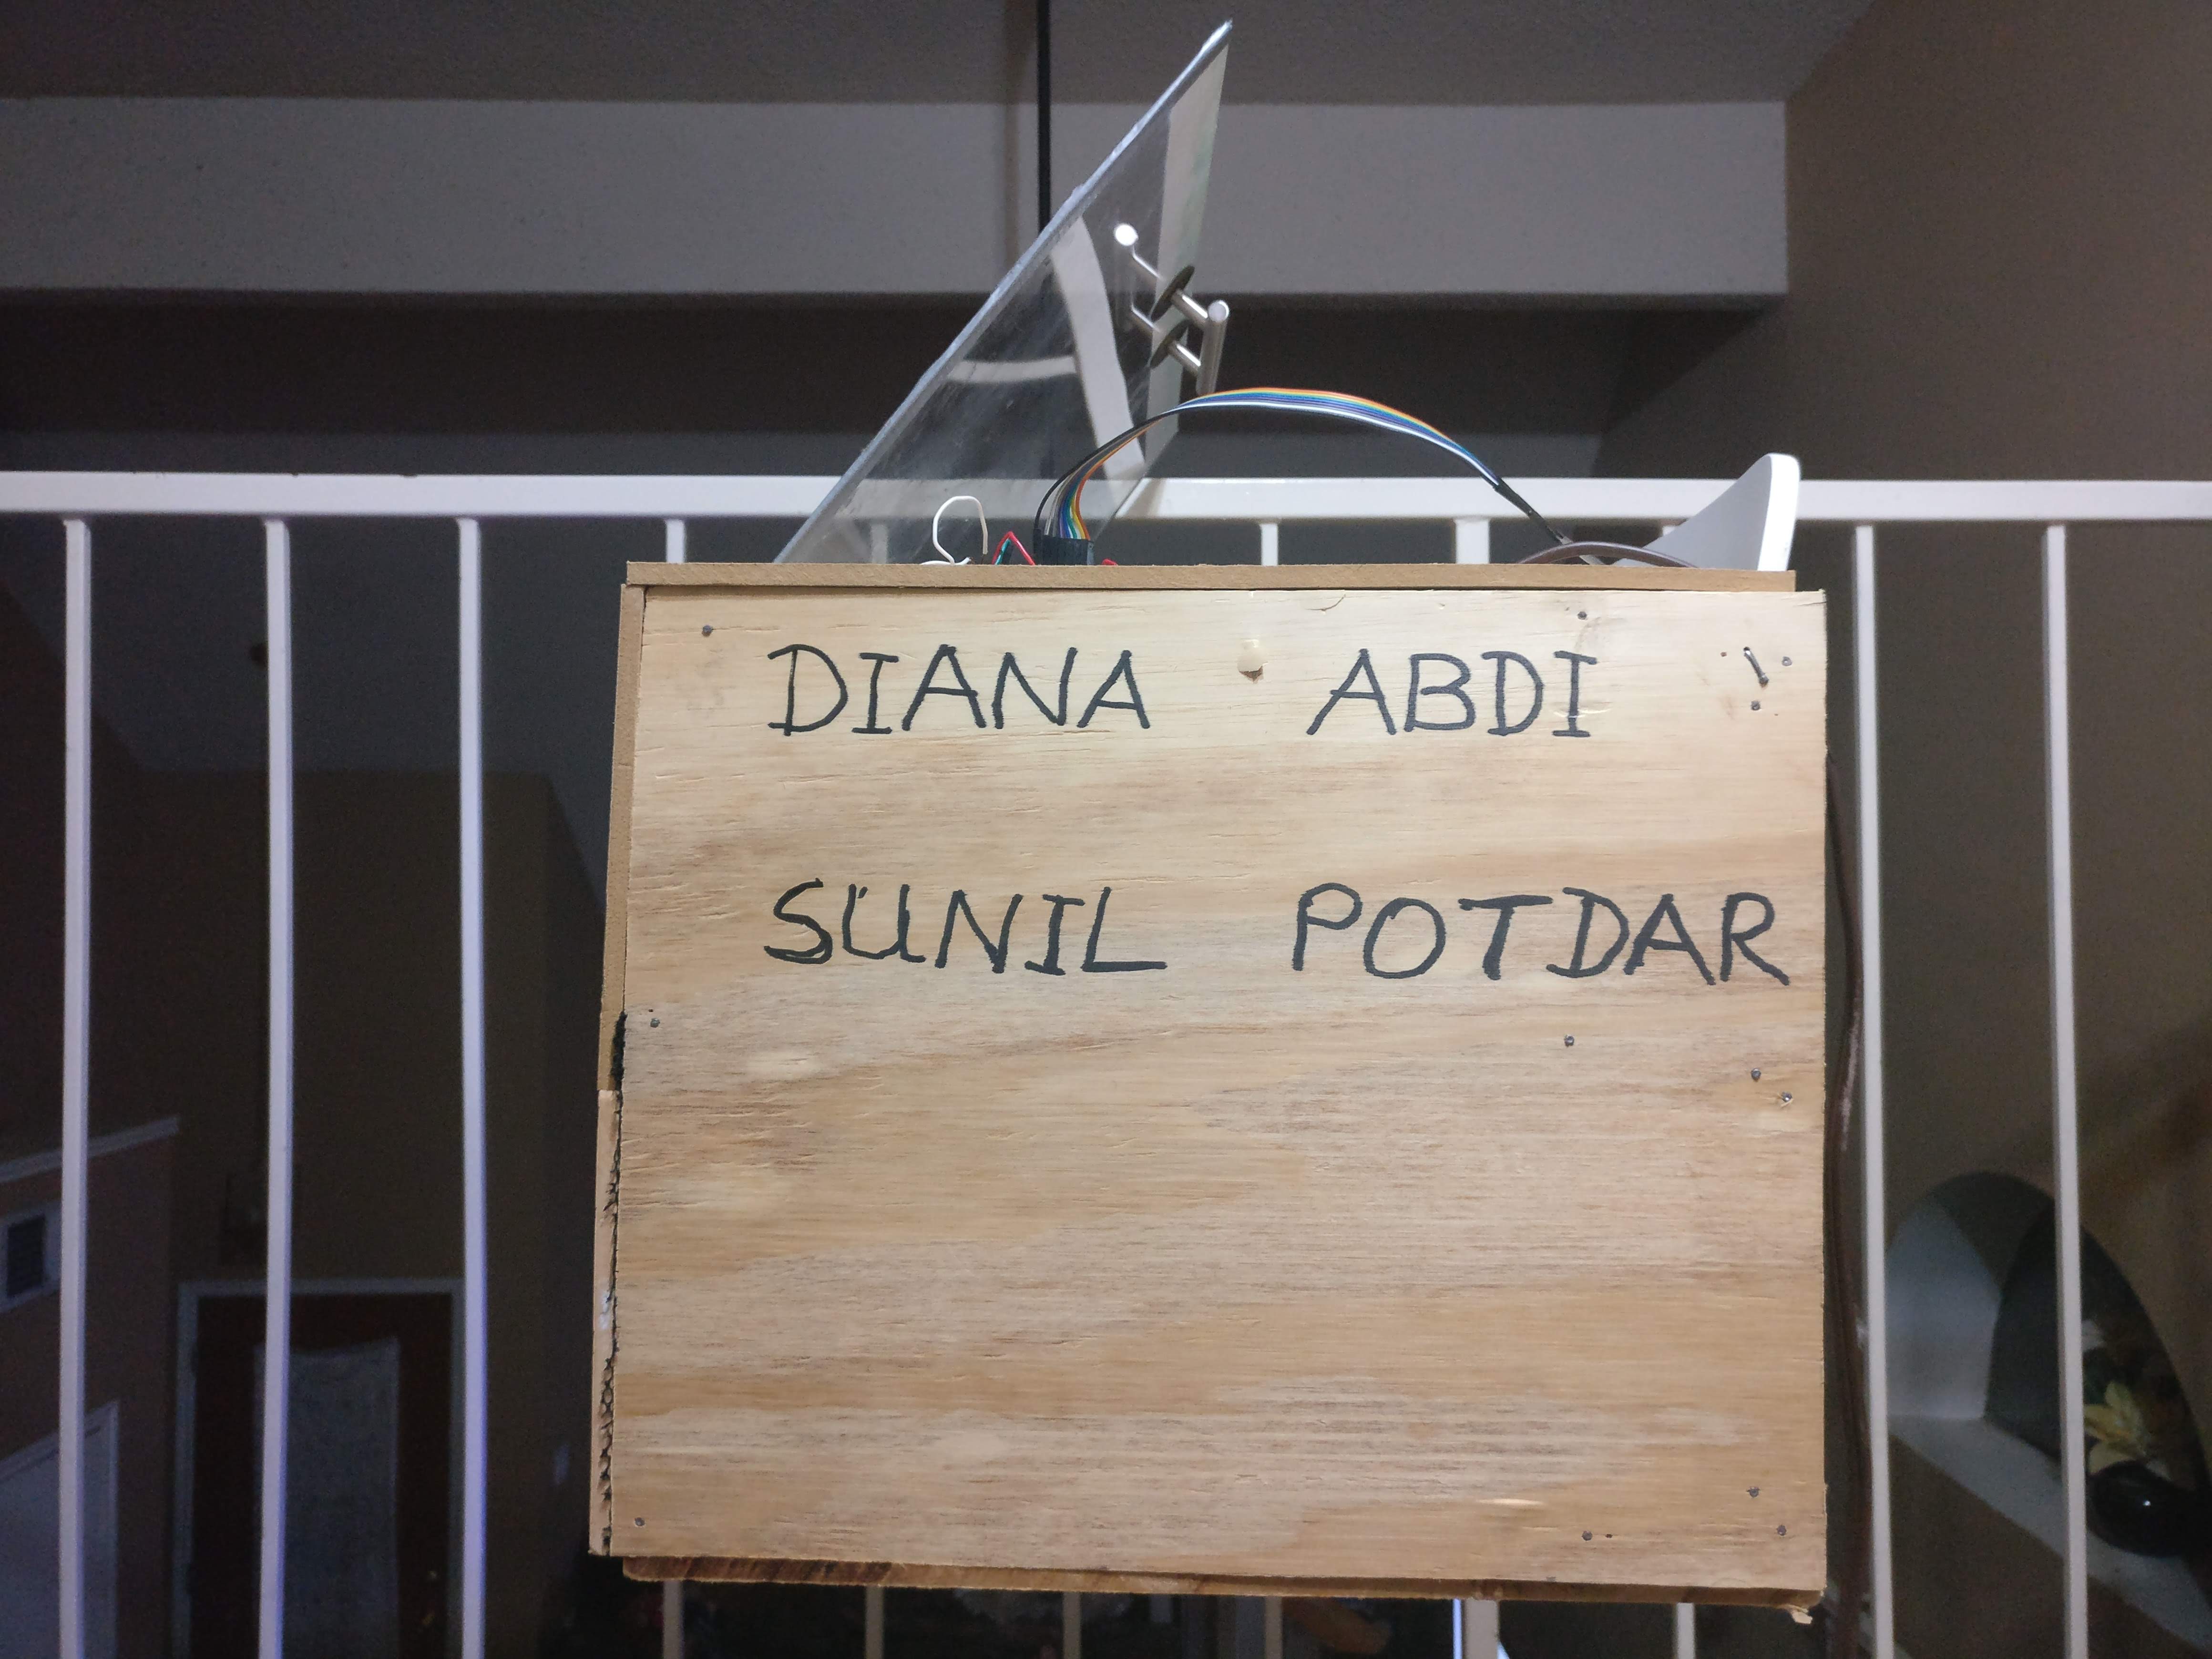 DIANA ABDI
SUNIL POTDAR